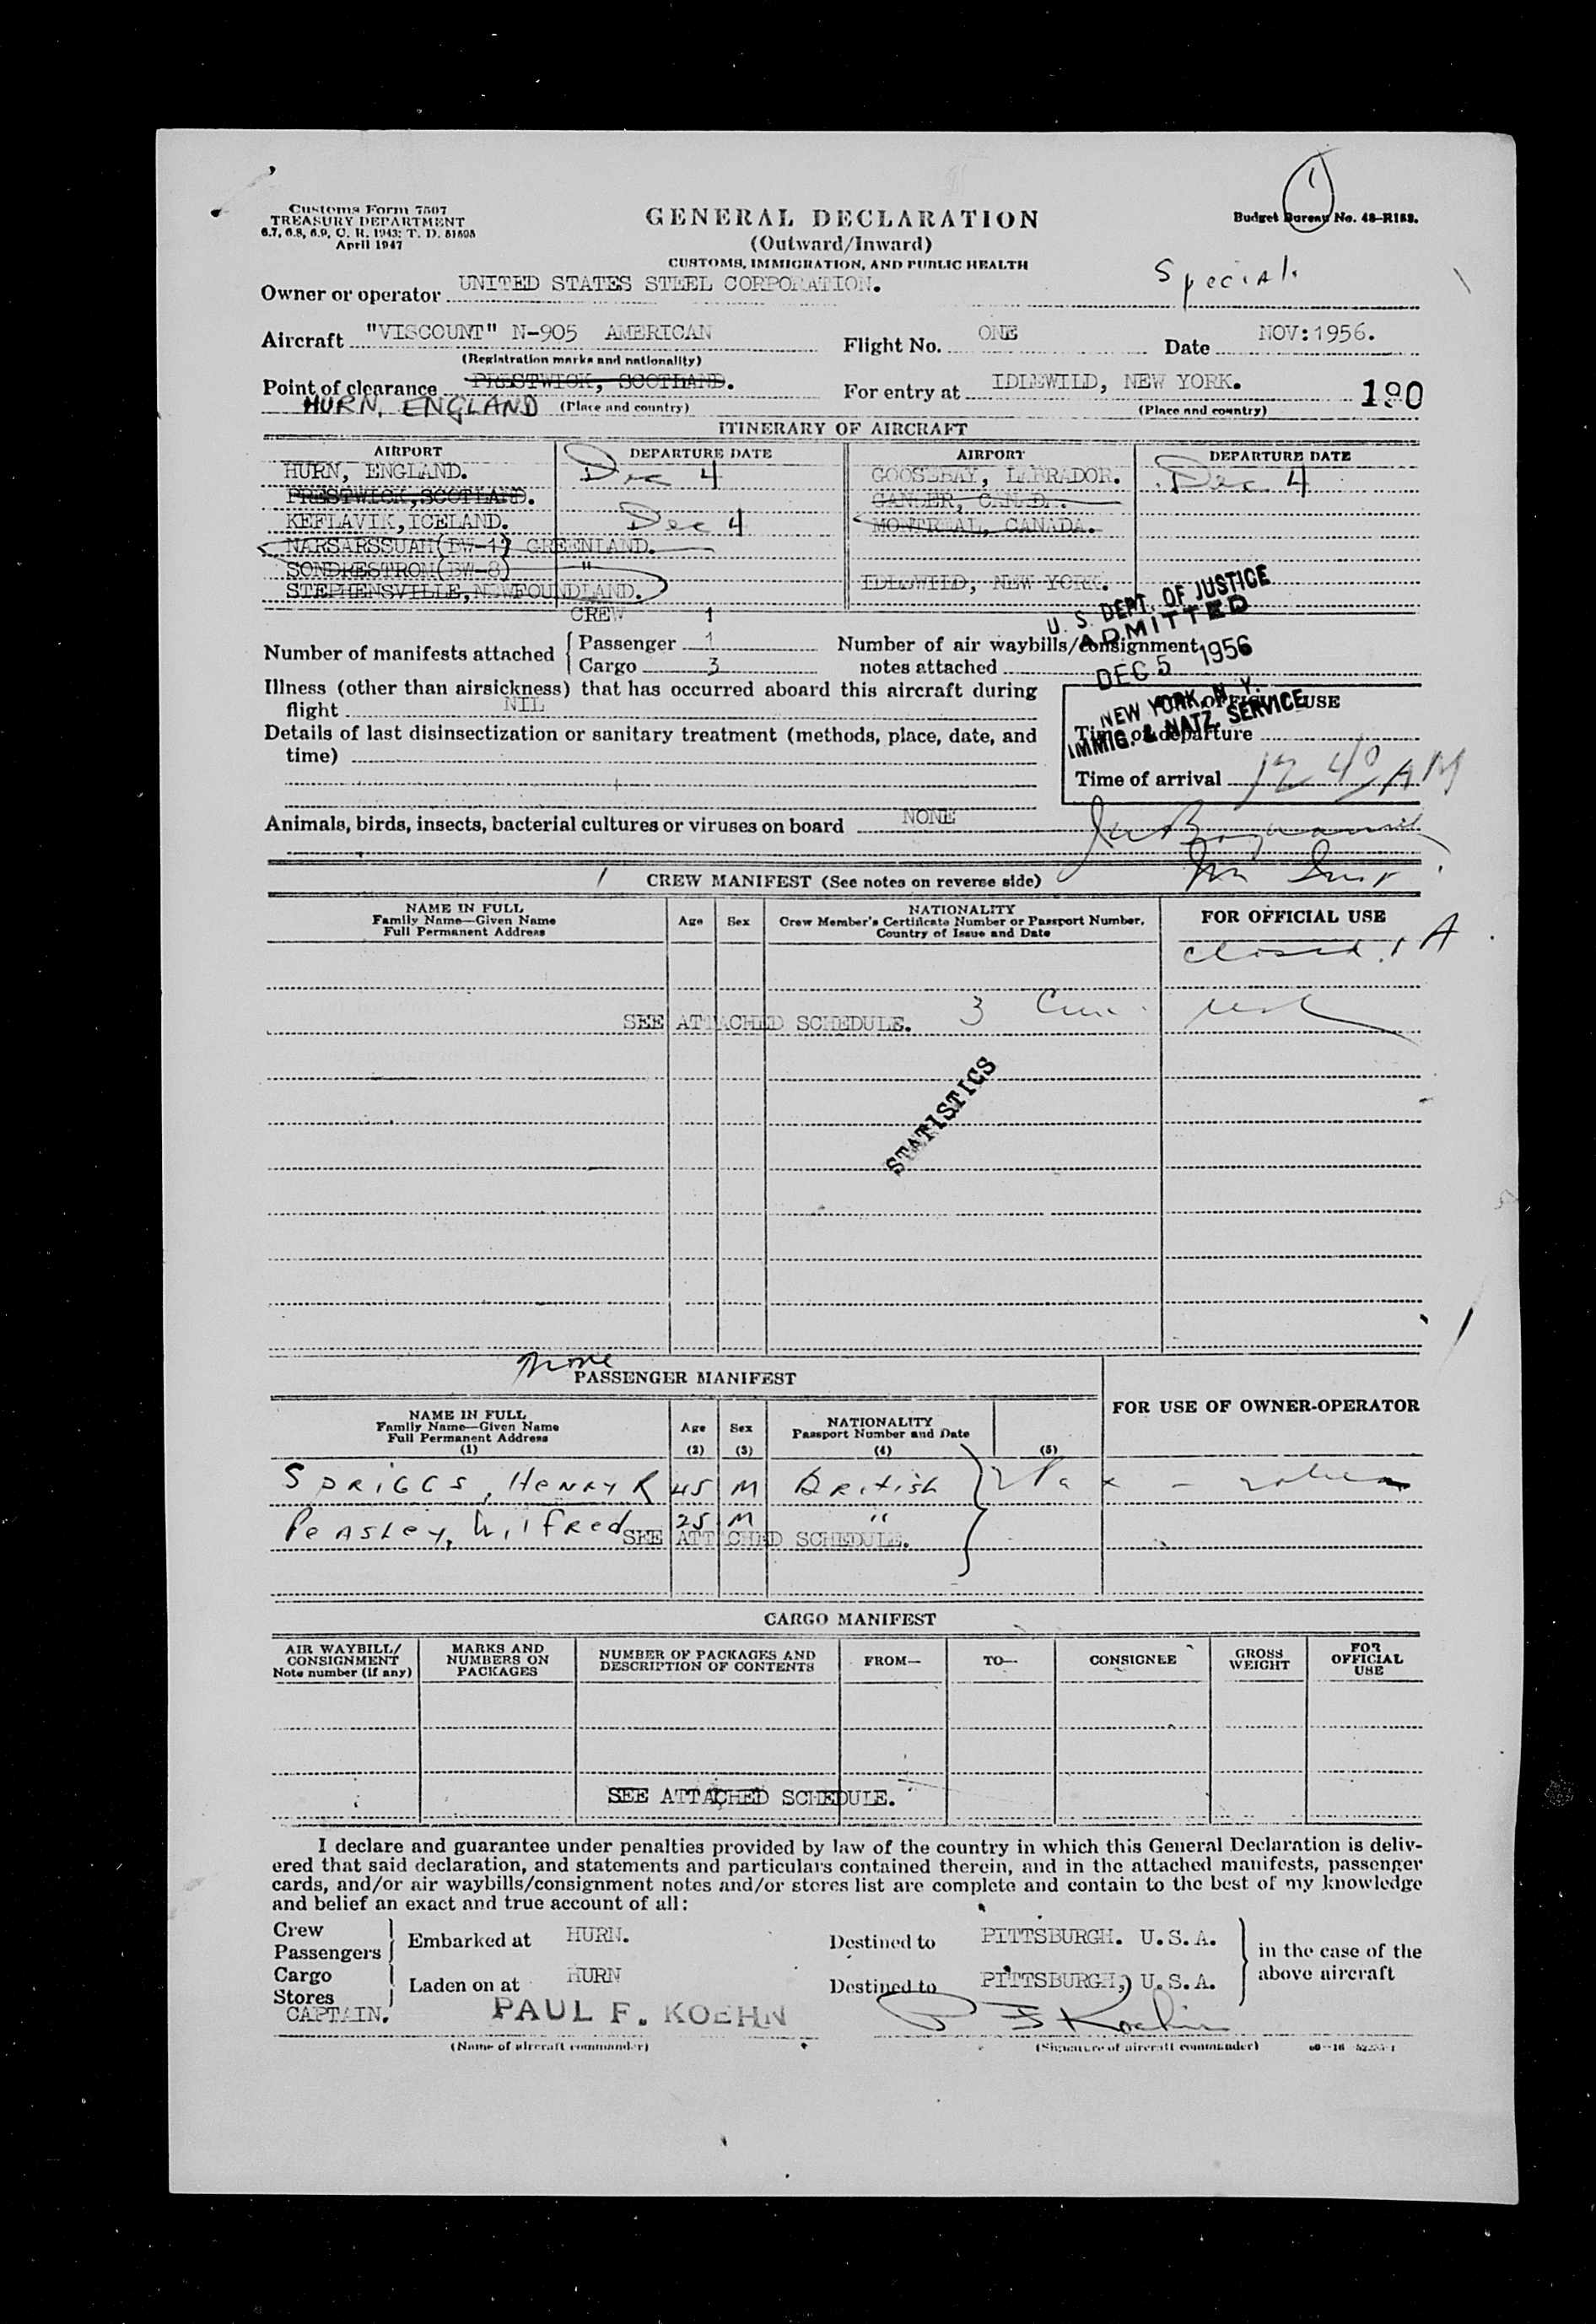 1
Customs Form 7507
TREASURY DEPARTMENT
6.7, 6.8, 6.9, C. R. 1943: T. D. 51595
April 1947
GENERAL DECLARATION
(Outward/Inward)
CUSTOMS, IMMIGRATION, AND PUBLIC HEALTH
Budget Bureau No. 48-R183.
Special.
Owner or operator UNITED STATES STEEL CORPORATION.
Aircraft "VISCOUNT" N-905 AMERICAN Flight No. ONE Date NOV:1956.
(Registration marks and nationality)
Point of clearance PRESTWICK, SCOTLAND. For entry at IDLEWILD, NEW YORK. 190
HURN, ENGLAND (Place and country) (Place and country)
ITINERARY OF AIRCRAFT
AIRPORT DEPARTURE DATE AIRPORT DEPARTURE DATE
HURN, ENGLAND. Dec 4 GOOSEBAY, LABRADOR. Dec 4
PRESTWICK,SCOTLAND. GANDER, CAN.D.
KEFLAVIK,ICELAND. Dec 4 MONTREAL, CANADA.
NARSARSSUAH(BW-1) GREENLAND.
SONDRESTROM(BW-8) "
STEPHENSVILLE,NEWFOUNDLAND. IDLEWILD, NEW YORK.
U. S. DEPT. OF JUSTICE
ADMITTED
DEC 5 1956
NEW YORK, N. Y.
IMMIG. & NATZ. SERVICE
CREW 1
Number of manifests attached Passenger 1 Number of air waybills/consignment
Cargo 3 notes attached
Illness (other than airsickness) that has occurred aboard this aircraft during
flight NIL
FOR OFFICIAL USE
Details of last disinsectization or sanitary treatment (methods, place, date, and
time)
Time of departure
Time of arrival 12 40 AM
Animals, birds, insects, bacterial cultures or viruses on board NONE
CREW MANIFEST (See notes on reverse side)
NAME IN FULL
Family Name—Given Name
Full Permanent Address
Age Sex
NATIONALITY
Crew Member's Certificate Number or Passport Number,
Country of Issue and Date
FOR OFFICIAL USE
SEE ATTACHED SCHEDULE. 3
STATISTICS
None
PASSENGER MANIFEST
FOR USE OF OWNER-OPERATOR
NAME IN FULL
Family Name—Given Name
Full Permanent Address
(1)
Age (2) Sex (3)
NATIONALITY
Passport Number and Date
(4) (5)
SPRIGGS, HENRY R 45 M British 2 Pax
Peasley, Wilfred 25 M "
SEE ATTACHED SCHEDULE.
CARGO MANIFEST
AIR WAYBILL/
CONSIGNMENT
Note number (if any)
MARKS AND
NUMBERS ON
PACKAGES
NUMBER OF PACKAGES AND
DESCRIPTION OF CONTENTS
FROM— TO— CONSIGNEE
GROSS
WEIGHT
FOR
OFFICIAL
USE
SEE ATTACHED SCHEDULE.
I declare and guarantee under penalties provided by law of the country in which this General Declaration is deliv-
ered that said declaration, and statements and particulars contained therein, and in the attached manifests, passenger
cards, and/or air waybills/consignment notes and/or stores list are complete and contain to the best of my knowledge
and belief an exact and true account of all:
Crew
Passengers Embarked at HURN. Destined to PITTSBURGH. U.S.A. in the case of the
Cargo above aircraft
Stores Laden on at HURN Destined to PITTSBURGH, U.S.A.
CAPTAIN. PAUL F. KOEHN P F Koehn
(Name of aircraft commander) (Signature of aircraft commander)